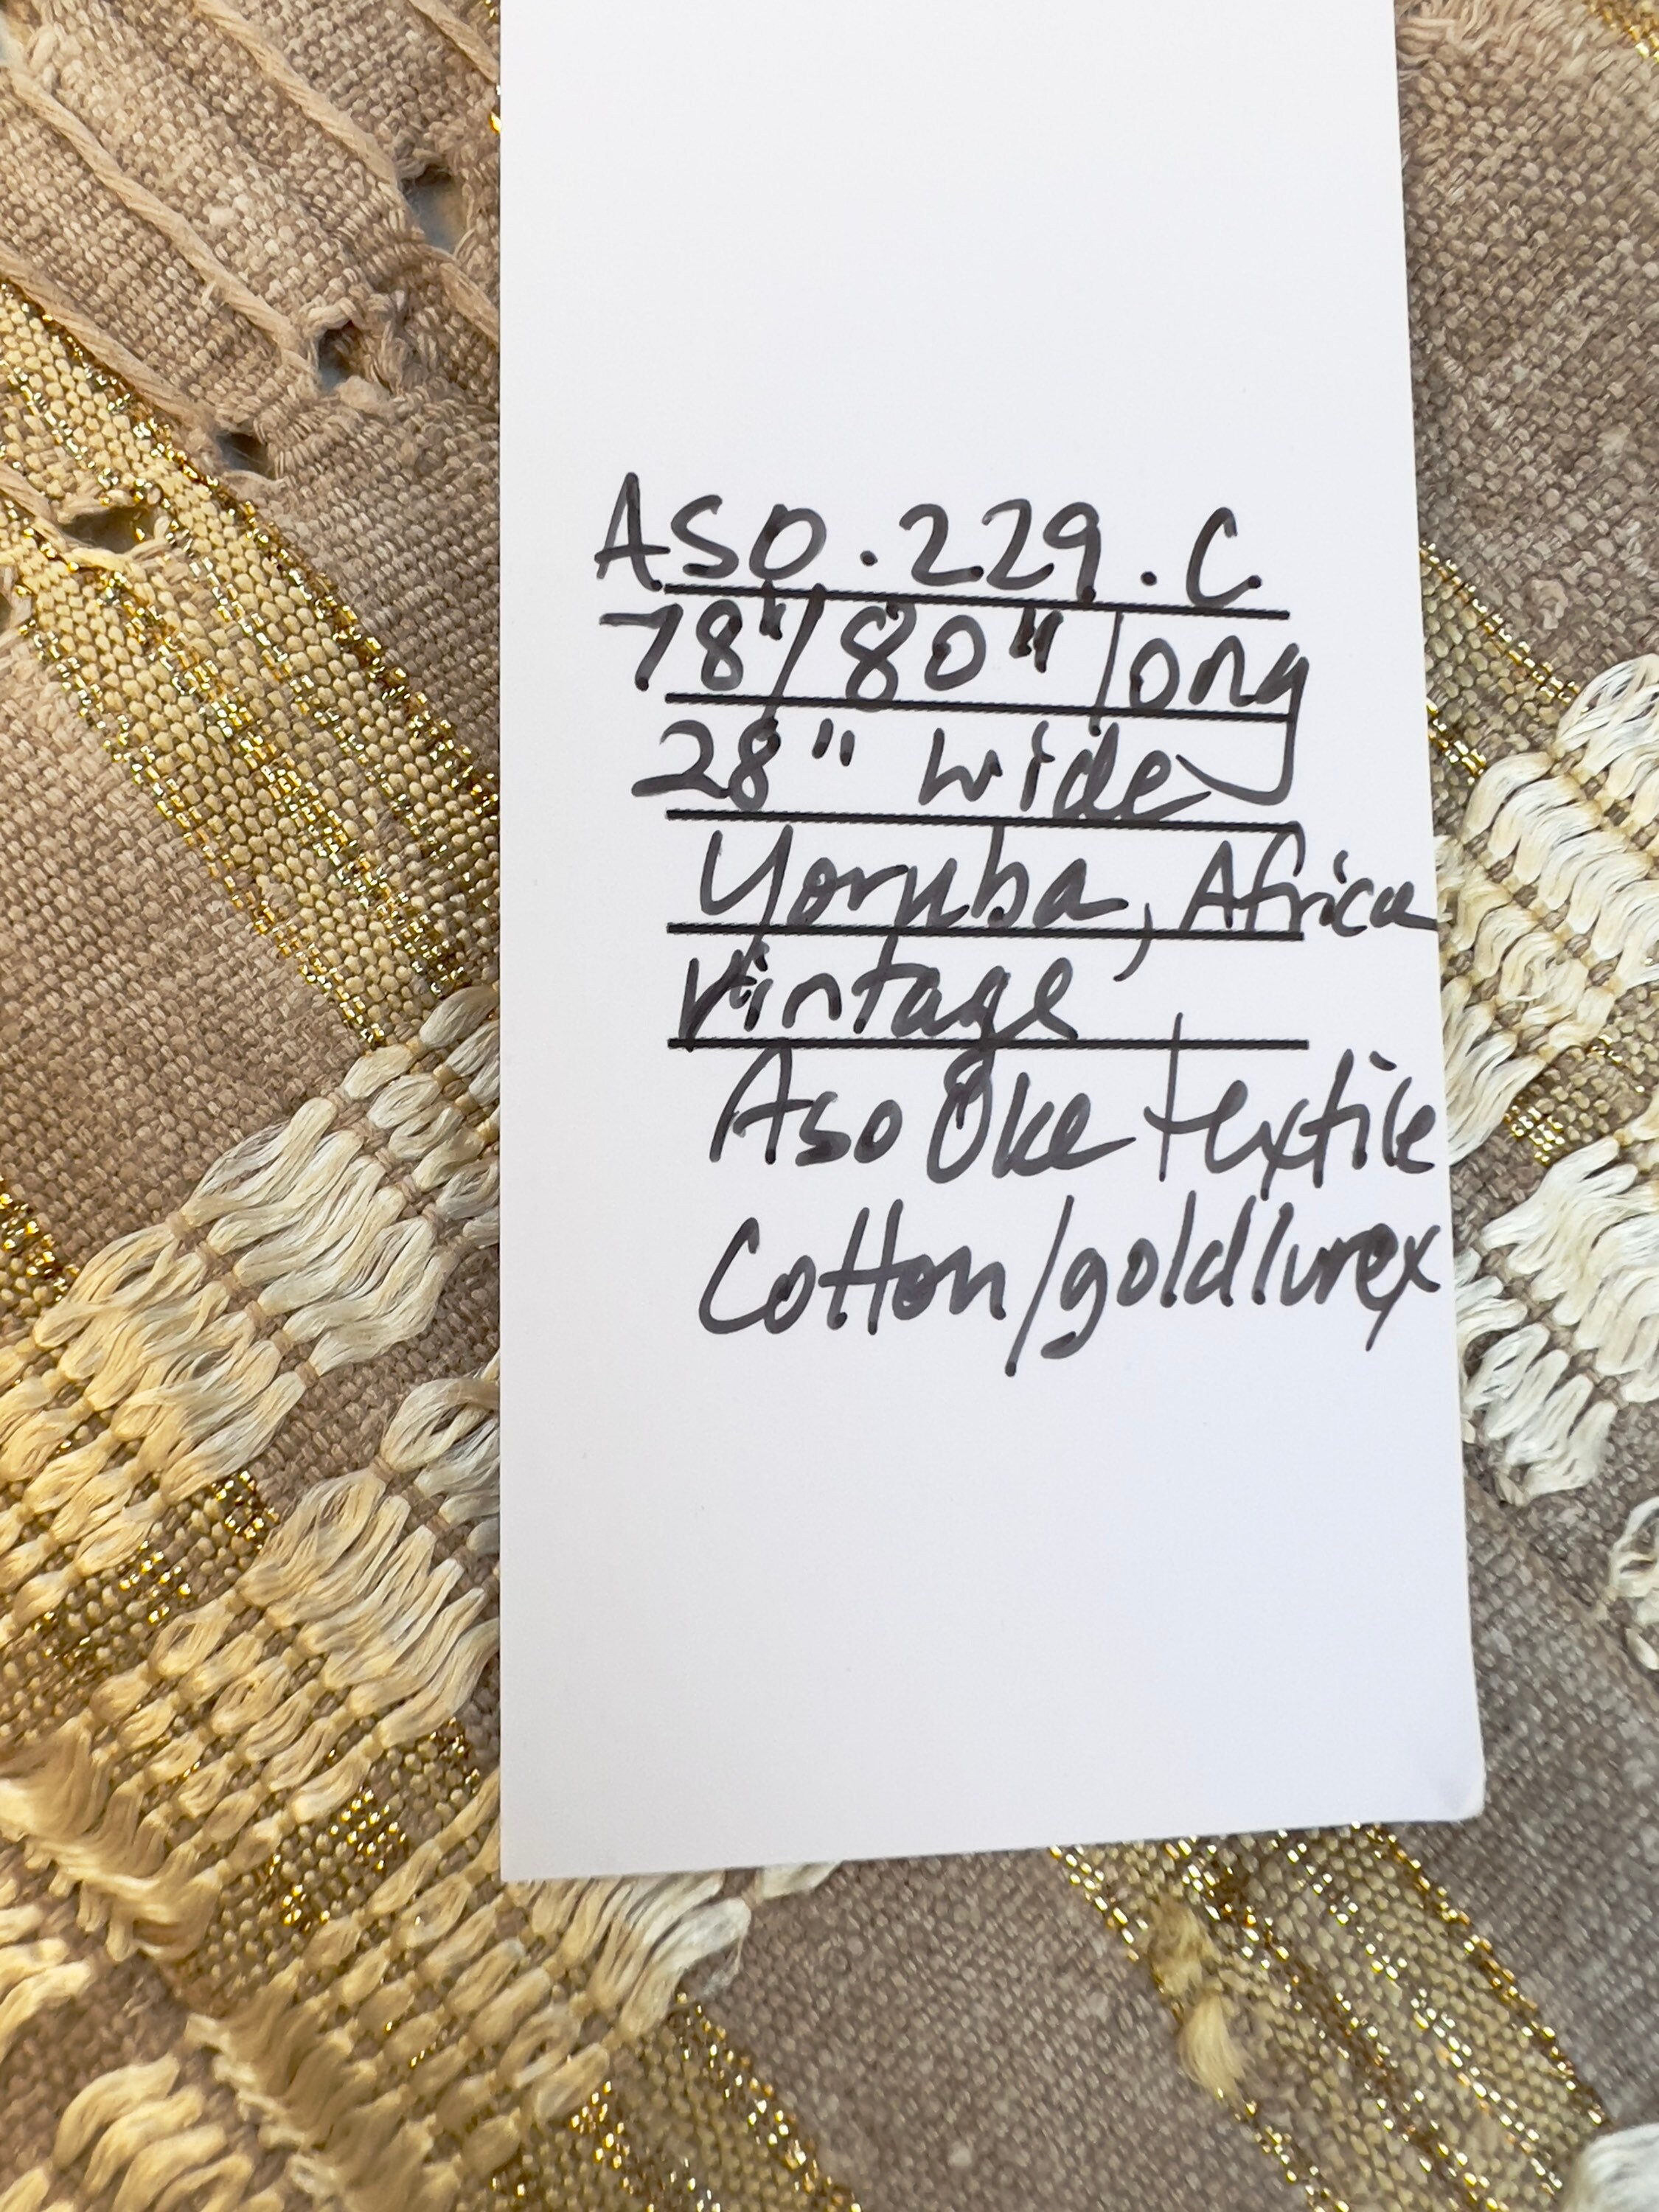 ASO.229.C
78"/80" long
28" wide
Yoruba, Africa
Vintage
Aso Oke textile
Cotton/gold lurex